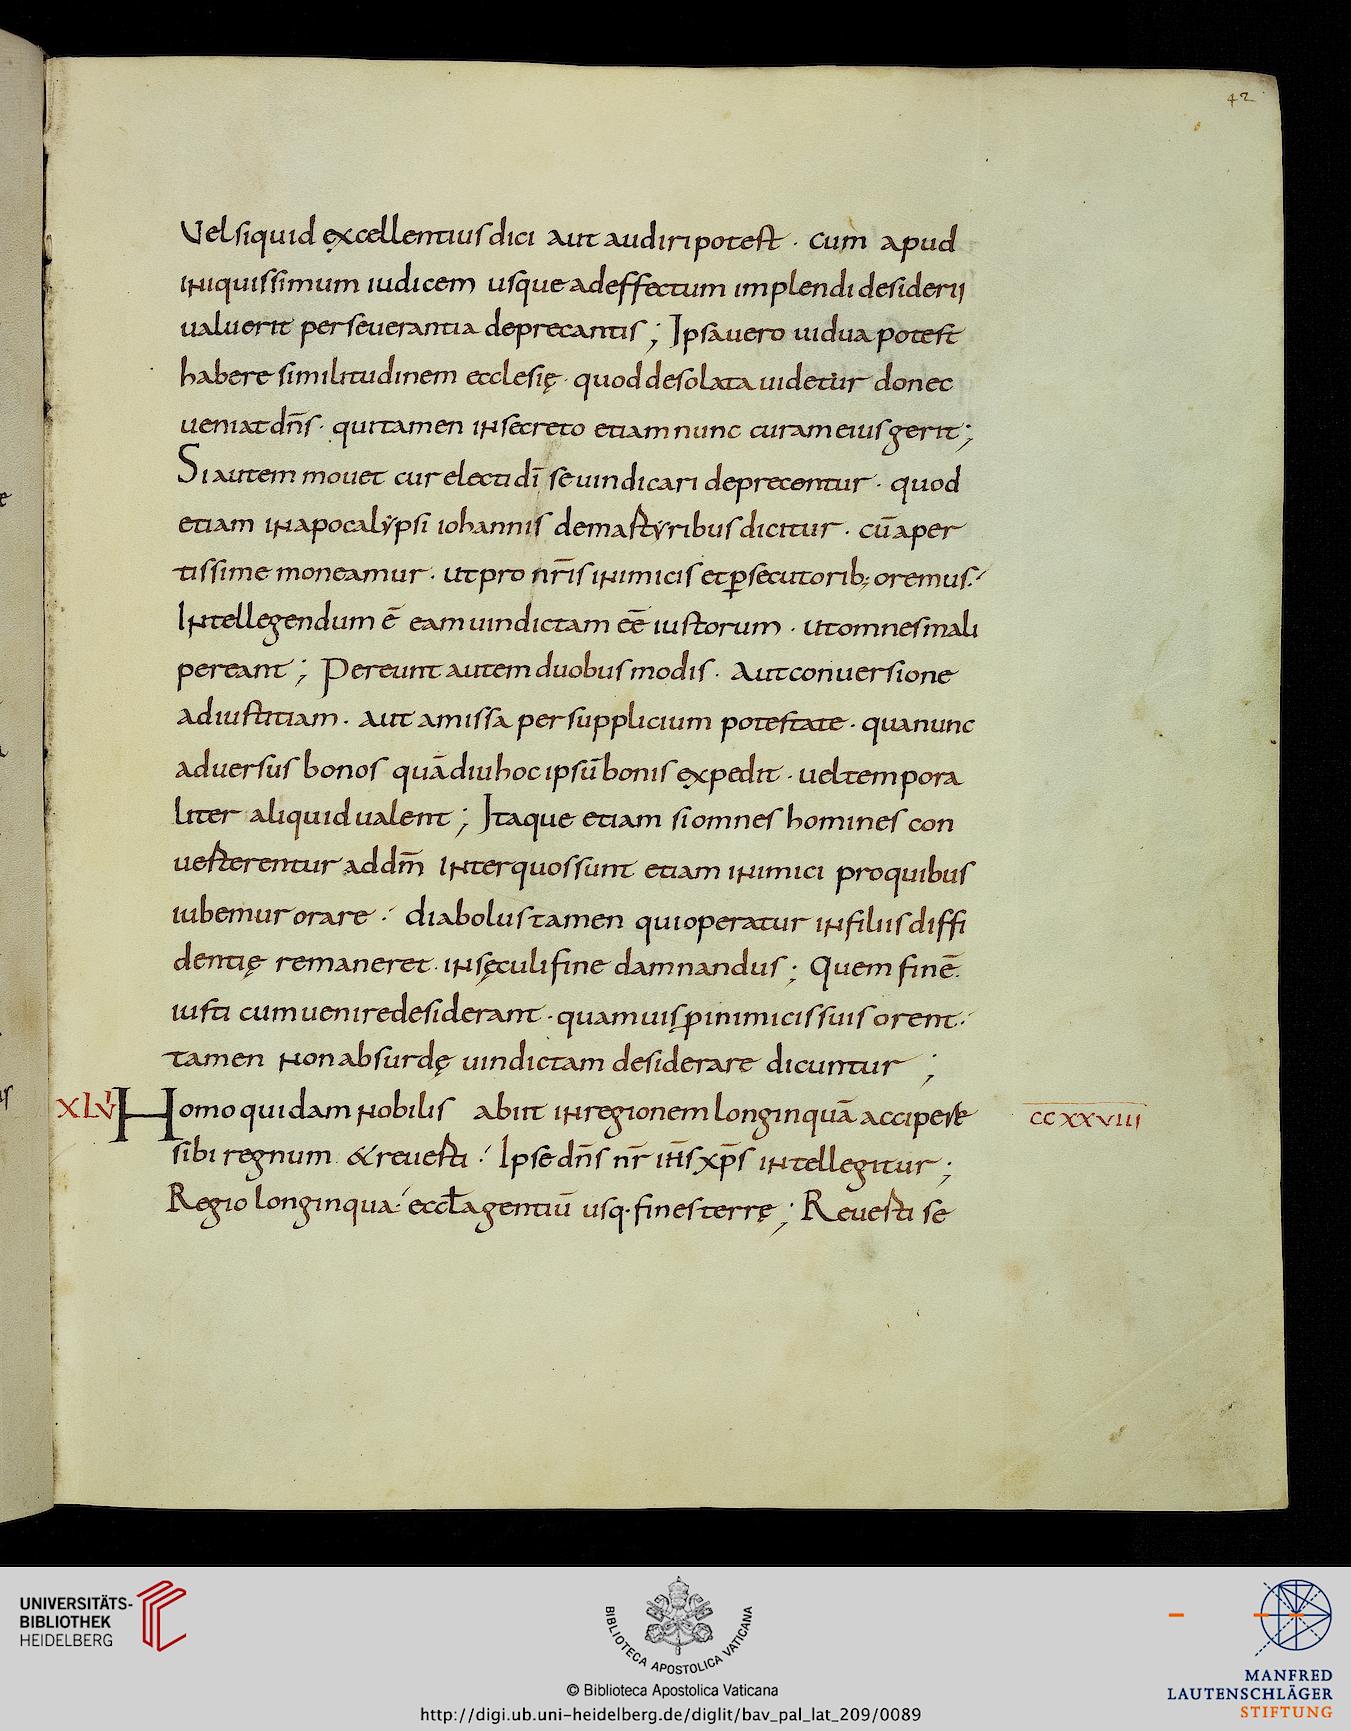 42
Vel siquid excellentius dici aut audiri potest · cum apud
iniquissimum iudicem usque ad effectum implendi desiderii
ualuerit perseuerantia deprecantis ; Ipsa uero uidua potest
habere similitudinem ecclesię · quod desolata uidetur donec
ueniat dn̄s · qui tamen in secreto etiam nunc curam eius gerit ;
Si autem mouet cur electi dī se uindicari deprecentur · quod
etiam in apocalẏpsi iohannis de martyribus dicitur · cū aper
tissime moneamur · ut pro nr̄is inimicis et ꝑsecutorib; oremus :
Intellegendum ē eam uindictam eē iustorum · ut omnes mali
pereant ; Pereunt autem duobus modis · Aut conuersione
ad iustitiam · aut amissa per supplicium potestate · qua nunc
aduersus bonos quādiu hoc ipsū bonis expedit · uel tempora
liter aliquid ualent ; Itaque etiam si omnes homines con
uerterentur ad dm̄ inter quos sunt etiam inimici pro quibus
iubemur orare : diabolus tamen qui operatur in filiis diffi
dentię remaneret · in sęculi fine damnandus ; Quem finē
iusti cum uenire desiderant · quamuis ꝓ inimicis suis orent :
tamen non absurdę uindictam desiderare dicuntur ;
XLVI Homo quidam nobilis abiit in regionem longinquā accipere CCXXVIII
sibi regnum & reuerti : Ipse dn̄s nr̄ ih̄s xp̄s intellegitur ;
Regio longinqua : eccƚa gentiū usq· fines terrę ; Reuerti se
UNIVERSITÄTS-
BIBLIOTHEK
HEIDELBERG
BIBLIOTECA APOSTOLICA VATICANA
© Biblioteca Apostolica Vaticana
http://digi.ub.uni-heidelberg.de/diglit/bav_pal_lat_209/0089
MANFRED
LAUTENSCHLÄGER
STIFTUNG